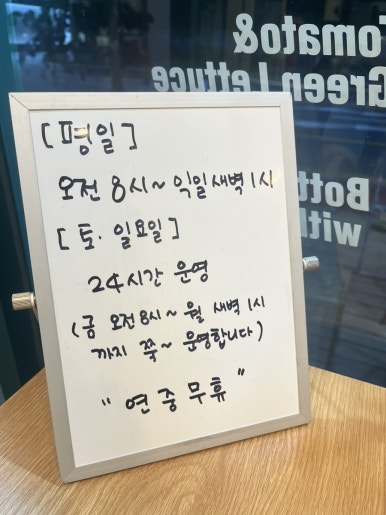 Tomato&
Green Lettuce
[평일]
오전 8시~ 익일 새벽 1시
[토·일요일]
24시간 운영
(금 오전 8시~ 월 새벽 1시
까지 쭉~ 운영합니다)
"연중무휴"
with